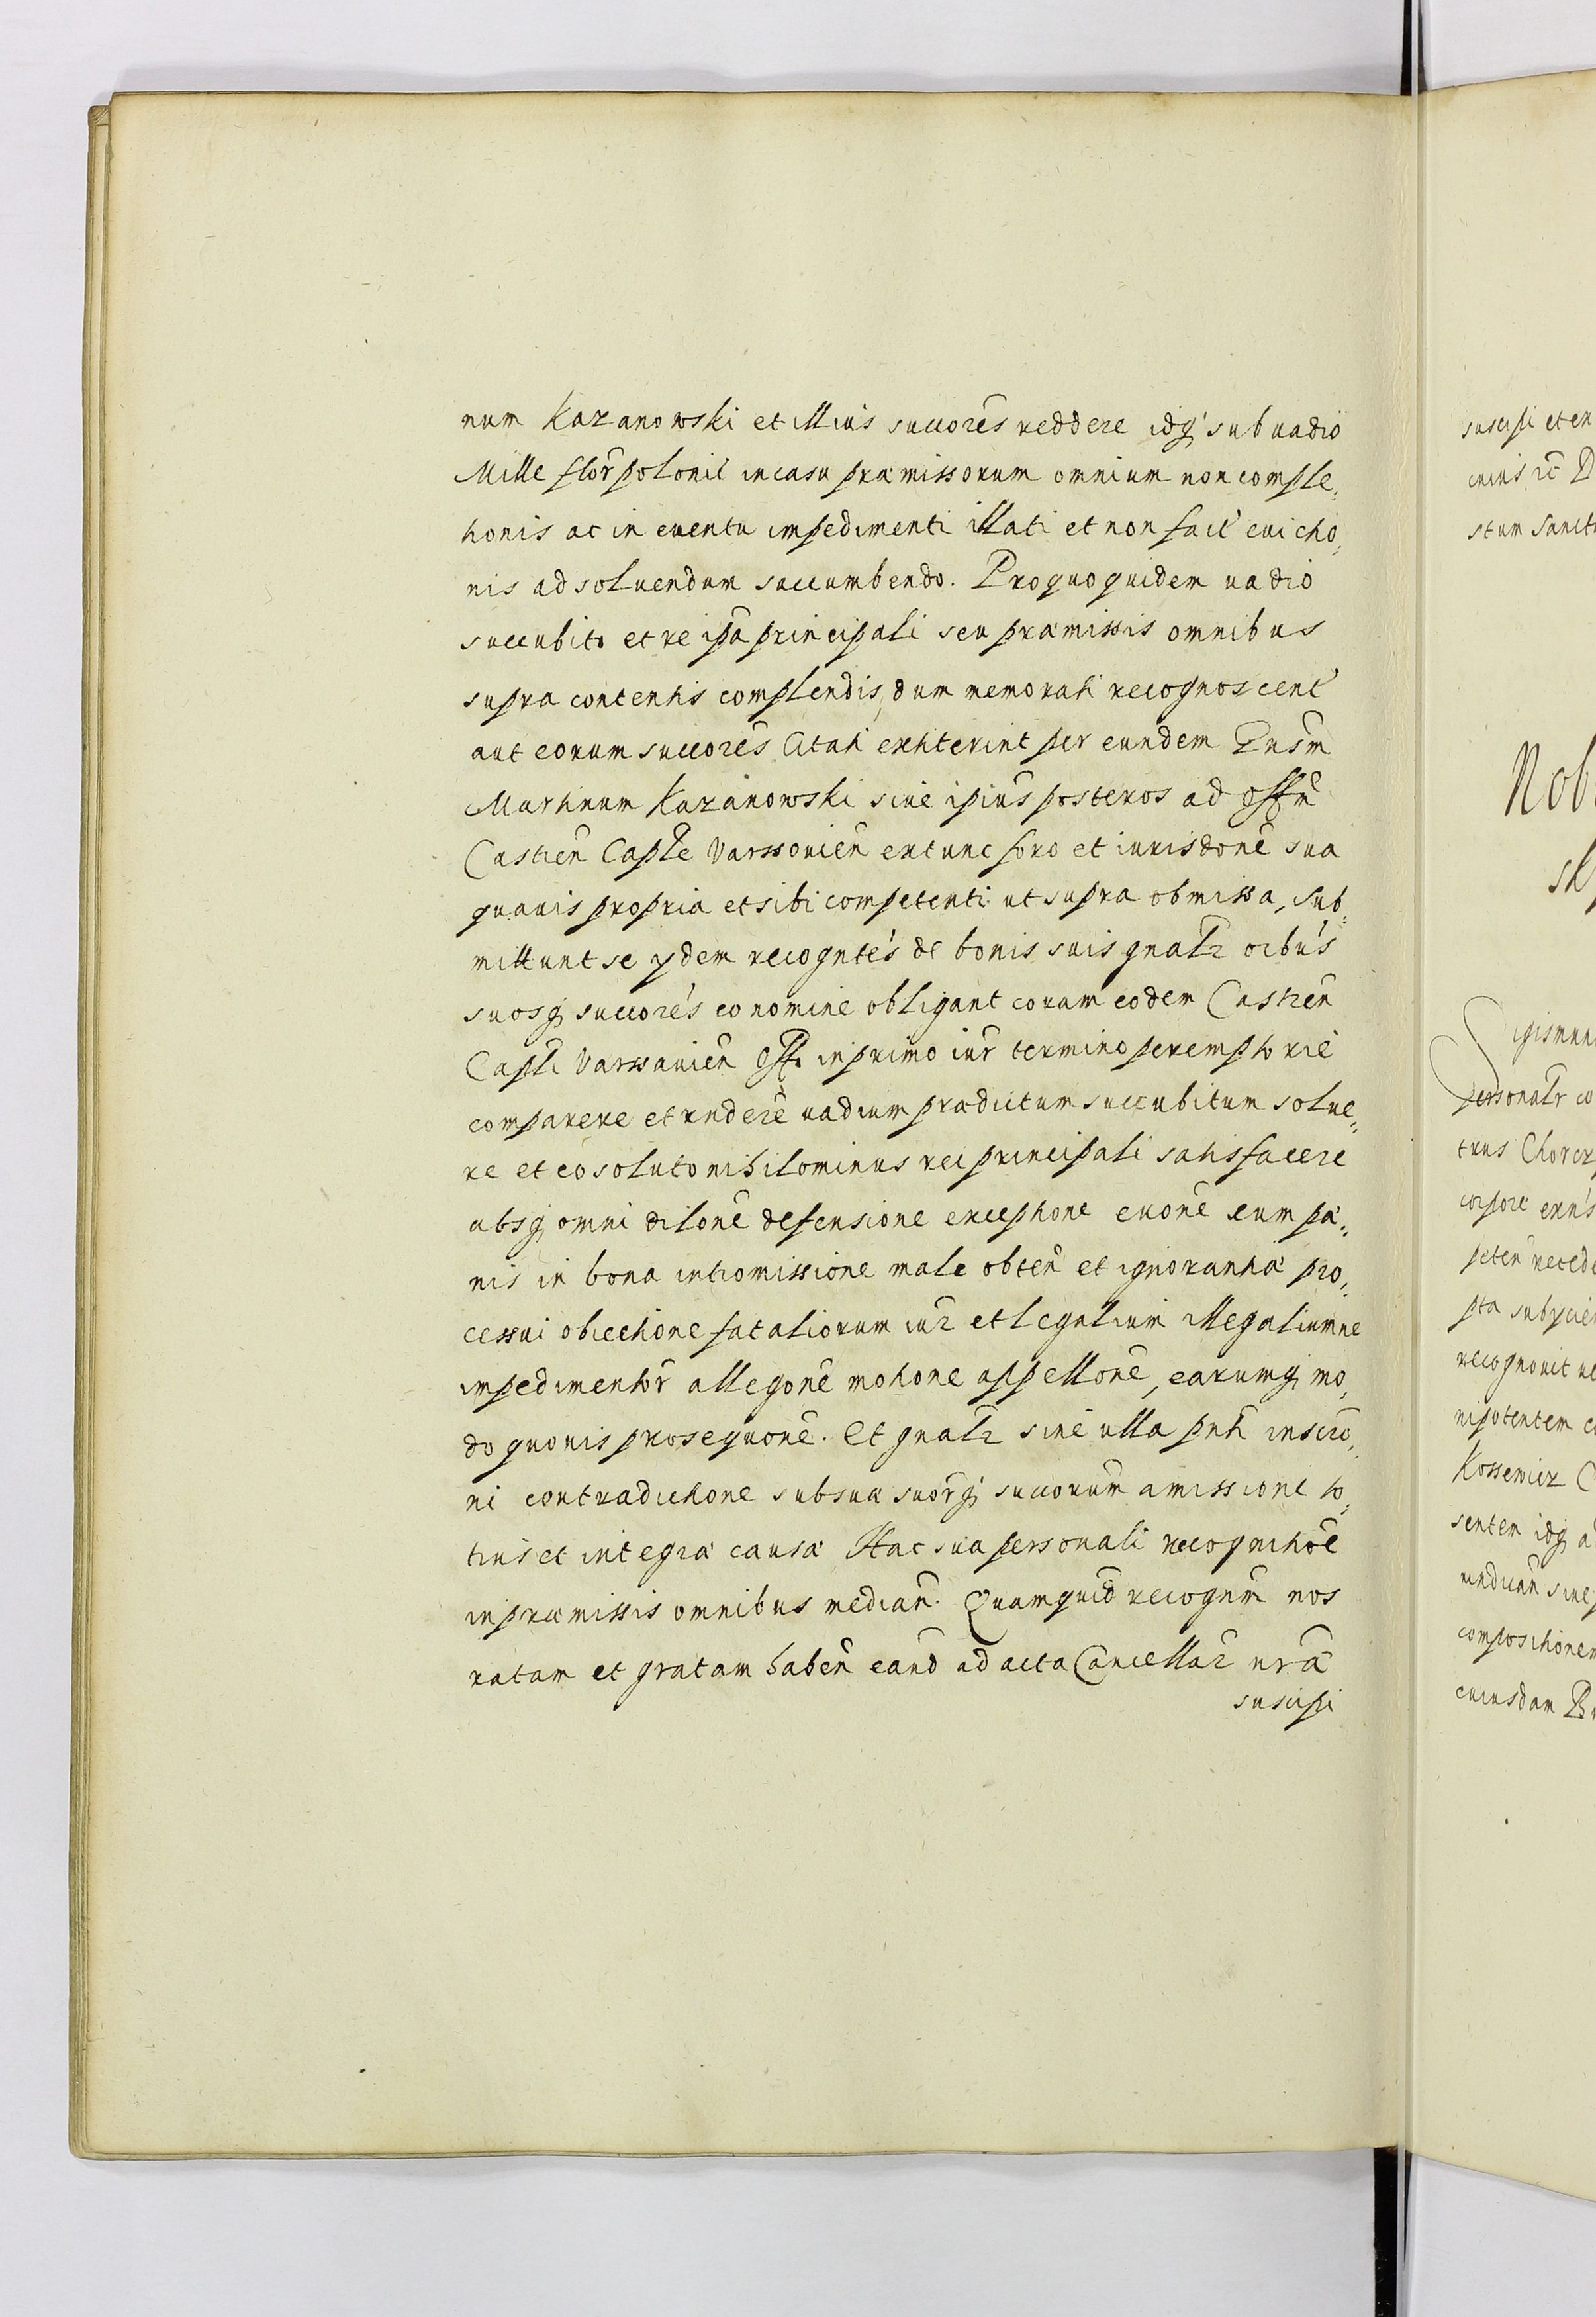 num Kazanowski et illius succores reddere idq sub vadio
Mille flor polonic in casu præmissorum omnium non comple,
tionis ac in eventu impedimenti illati et non fact evictio,
nis ad solvendum succumbendo. Pro quo quidem vadio
succubito et re ipa principali seu præmissis omnibus
supra contentis complendis, dum memorati recognoscent
aut eorum succores Citati extiterint per eundem Gnsm
Martinum Kazanowski sive ipius posteros ad offm
Castren Caple Varssovien extunc foro et iurisdone sua
quavis propria et sibi competenti ut supra obmissa, sub-
mittunt se ydem recogntes de bonis suis gnalr oibus
suosq succores eo nomine obligant coram eodem Castren
Capli Varssavien Offo in primo iur termino peremptorie
comparere et rndere vadium prædictum succubitum solve-
re et eo soluto nihilominus rei principali satisfacere
absq omni dilone defensione exceptione evone eum pa-
nis in bona intromissione male obten et ignorantia pro-
cessui obiectione fataliorum iur et legalium illegaliumve
impedimentor allegone motione appellone, earumq mo,
do quovis prosequone. Et gnalr sine ulla pnti inscro,
ni contradictione sub sua suorq succorum amissione to,
tius et integra causa Hac sua personali recognitioe
in præmissis omnibus median. Quam quid recognm nos
ratam et gratam haben eand ad acta Cancellar nra
suscipi
suscipi et en
cuius rc
stum Sancti
Nob
Sigismun
personalr co
trus Chorcz
corpore exns
peten reced
pta subycien
recognovit
nipotentem
Kossewicz
sentem idq a
rnduan sive
compositionem
cuiusdam